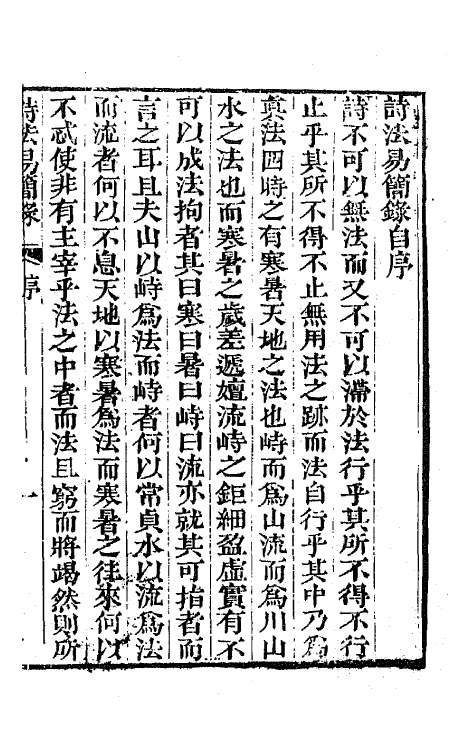 詩法易簡錄自序
詩不可以無法而又不可以滯於法行乎其所不得不行
止乎其所不得不止無用法之跡而法自行乎其中乃為
真法四時之有寒暑天地之法也峙而為山流而為川山
水之法也而寒暑之歲差遞嬗流峙之鉅細盈虛實有不
可以成法拘者其曰寒曰暑曰峙曰流亦就其可指者而
言之耳且夫山以峙為法而峙者何以常貞水以流為法
而流者何以不息天地以寒暑為法而寒暑之往來何以
不忒使非有主宰乎法之中者而法且窮而將竭然則所
詩法易簡錄 序 一